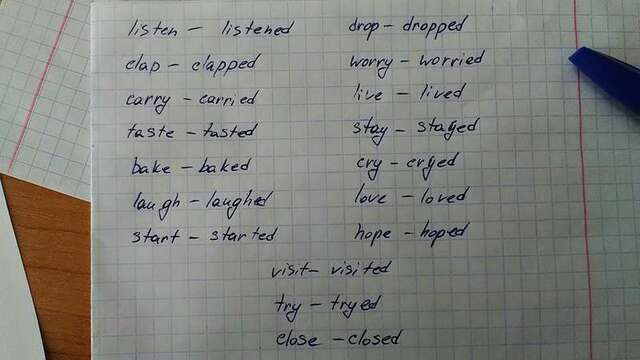 listen – listened
clap – clapped
carry – carried
taste – tasted
bake – baked
laugh – laughed
start – started
drop – dropped
worry – worried
live – lived
stay – stayed
cry – cryed
love – loved
hope – hoped
visit – visited
try – tryed
close – closed